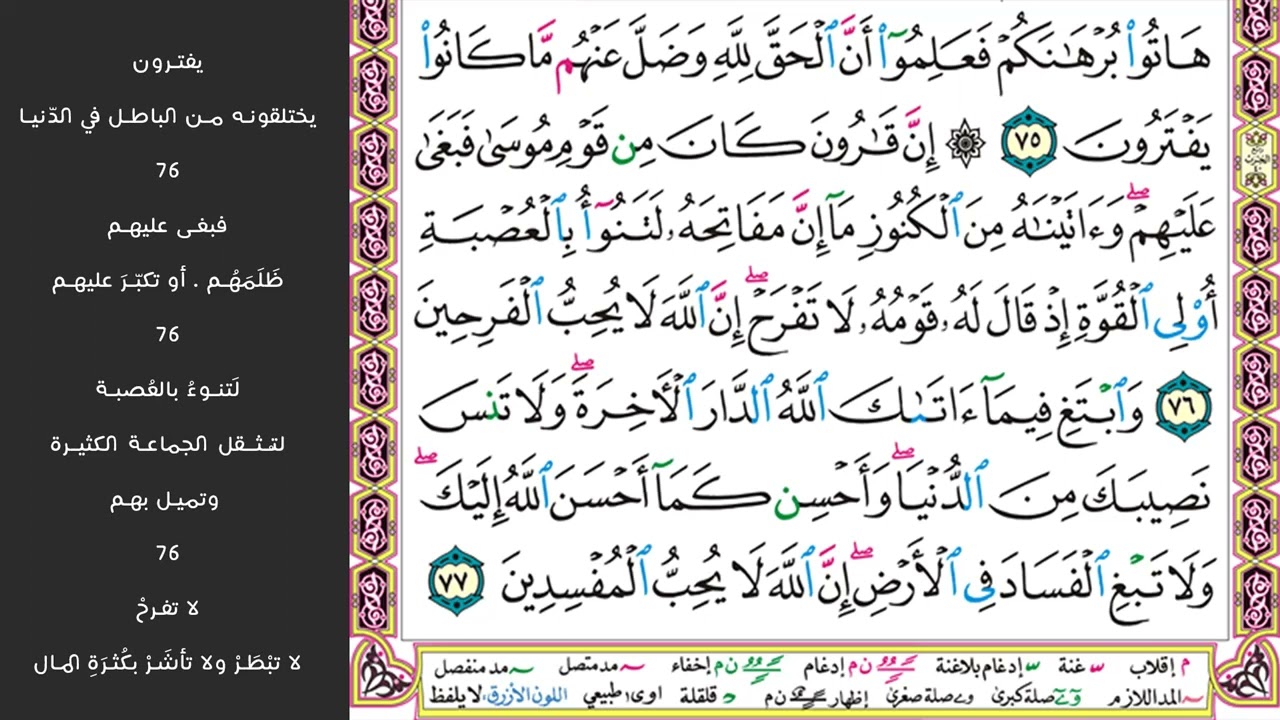 هَاتُوا۟ بُرْهَـٰنَكُمْ فَعَلِمُوٓا۟ أَنَّ ٱلْحَقَّ لِلَّهِ وَضَلَّ عَنْهُم مَّا كَانُوا۟
يَفْتَرُونَ ٧٥ ۞ إِنَّ قَـٰرُونَ كَانَ مِن قَوْمِ مُوسَىٰ فَبَغَىٰ
عَلَيْهِمْ ۖ وَءَاتَيْنَـٰهُ مِنَ ٱلْكُنُوزِ مَآ إِنَّ مَفَاتِحَهُۥ لَتَنُوٓأُ بِٱلْعُصْبَةِ
أُو۟لِى ٱلْقُوَّةِ إِذْ قَالَ لَهُۥ قَوْمُهُۥ لَا تَفْرَحْ ۖ إِنَّ ٱللَّهَ لَا يُحِبُّ ٱلْفَرِحِينَ
٧٦ وَٱبْتَغِ فِيمَآ ءَاتَىٰكَ ٱللَّهُ ٱلدَّارَ ٱلْـَٔاخِرَةَ ۖ وَلَا تَنسَ
نَصِيبَكَ مِنَ ٱلدُّنْيَا ۖ وَأَحْسِن كَمَآ أَحْسَنَ ٱللَّهُ إِلَيْكَ ۖ
وَلَا تَبْغِ ٱلْفَسَادَ فِى ٱلْأَرْضِ ۖ إِنَّ ٱللَّهَ لَا يُحِبُّ ٱلْمُفْسِدِينَ ٧٧
م إقلاب ـّ غنة ـّ إدغام بلاغنة ن م إدغام ن م إخفاء ~ مد متصل ~ مد منفصل
~ المد اللازم و ے صلة كبرى و ے صلة صغرى إظهار ن م قلقلة اوى طبيعي اللون الأزرق لا يلفظ
يفترون
يختلقونه من الباطل في الدّنيا
76
فبغى عليهم
ظَلَمَهُم . أو تكبّرَ عليهم
76
لَتنوءُ بالعُصبة
لتثقل الجماعة الكثيرة
وتميل بهم
76
لا تفرحْ
لا تبْطَرْ ولا تأشَرْ بكُثرَةِ المال